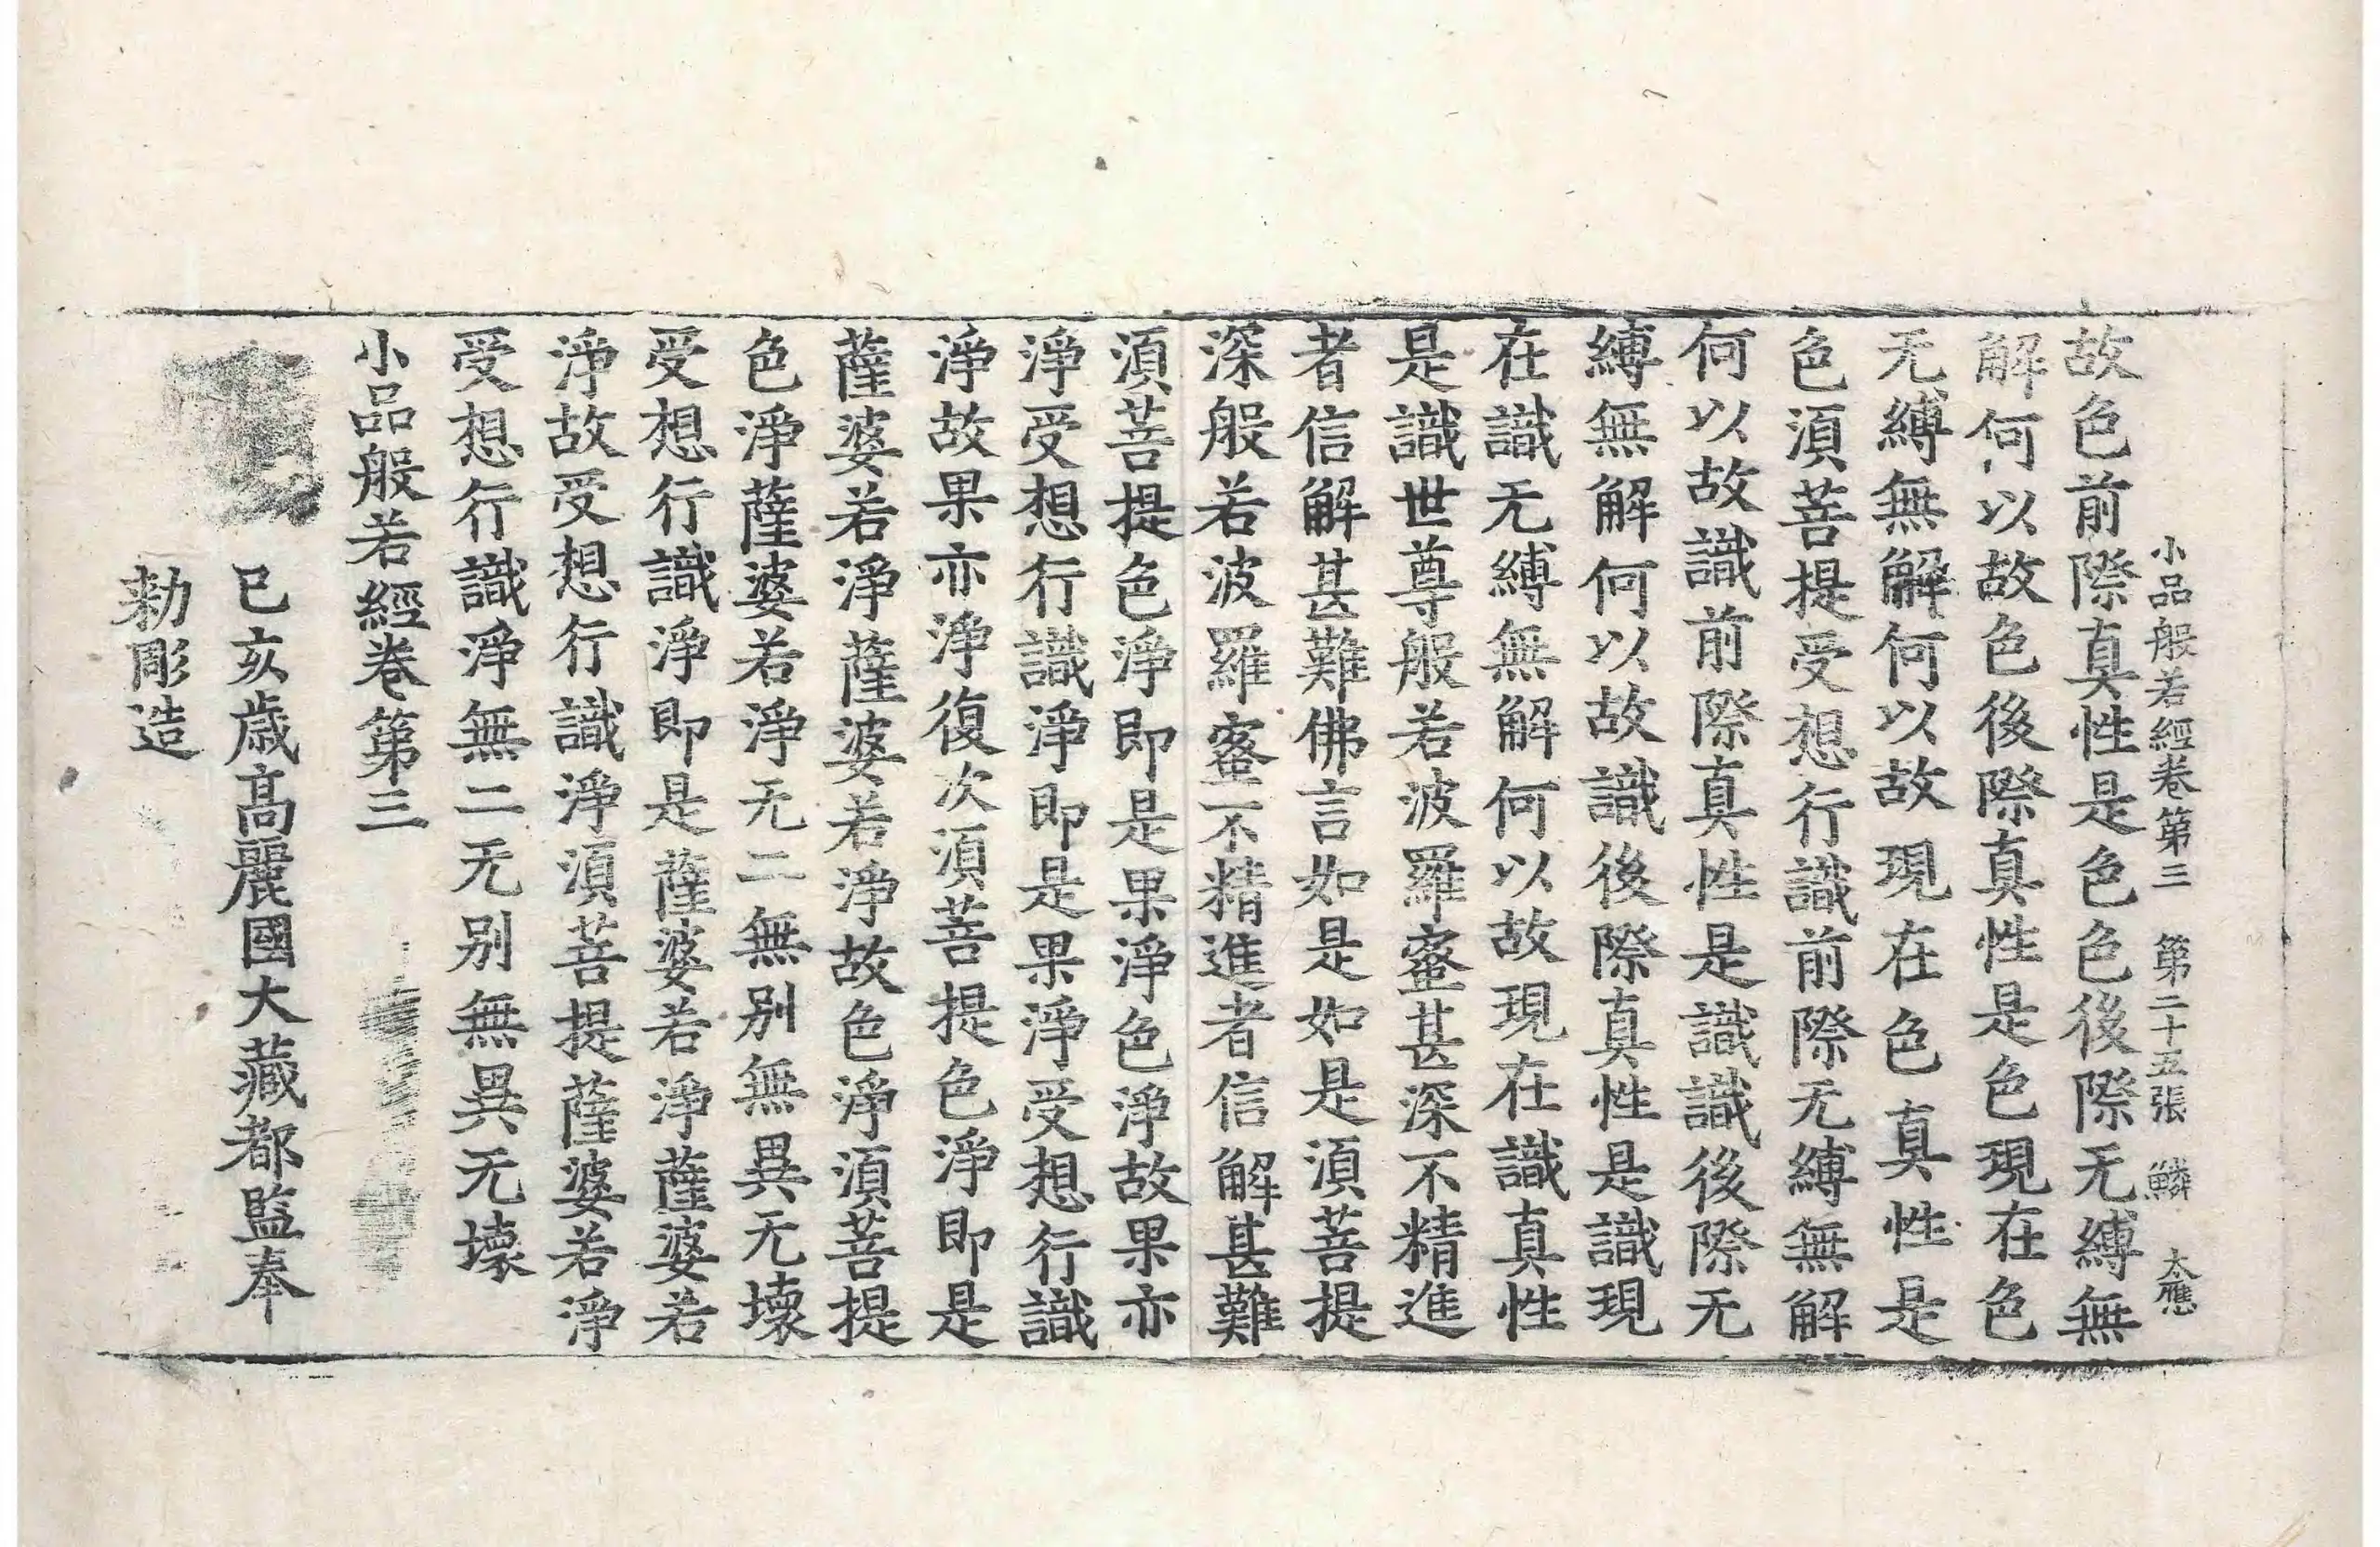 小品般若經卷第三 第二十五張 鱗 大應
故色前際真性是色色後際无縛無
解何以故色後際真性是色現在色
无縛無解何以故現在色真性是
色湏菩提受想行識前際无縛無解
何以故識前際真性是識識後際无
縛無解何以故識後際真性是識現
在識无縛無解何以故現在識真性
是識世尊般若波羅蜜甚深不精進
者信解甚難佛言如是如是湏菩提
深般若波羅蜜不精進者信解甚難
湏菩提色淨即是果淨色淨故果亦
淨受想行識淨即是果淨受想行識
淨故果亦淨復次湏菩提色淨即是
薩婆若淨薩婆若淨故色淨湏菩提
色淨薩婆若淨无二無別無異无壞
受想行識淨即是薩婆若淨薩婆若
淨故受想行識淨湏菩提薩婆若淨
受想行識淨無二无別無異无壞
小品般若經卷第三
己亥歲高麗國大藏都監奉
勑彫造